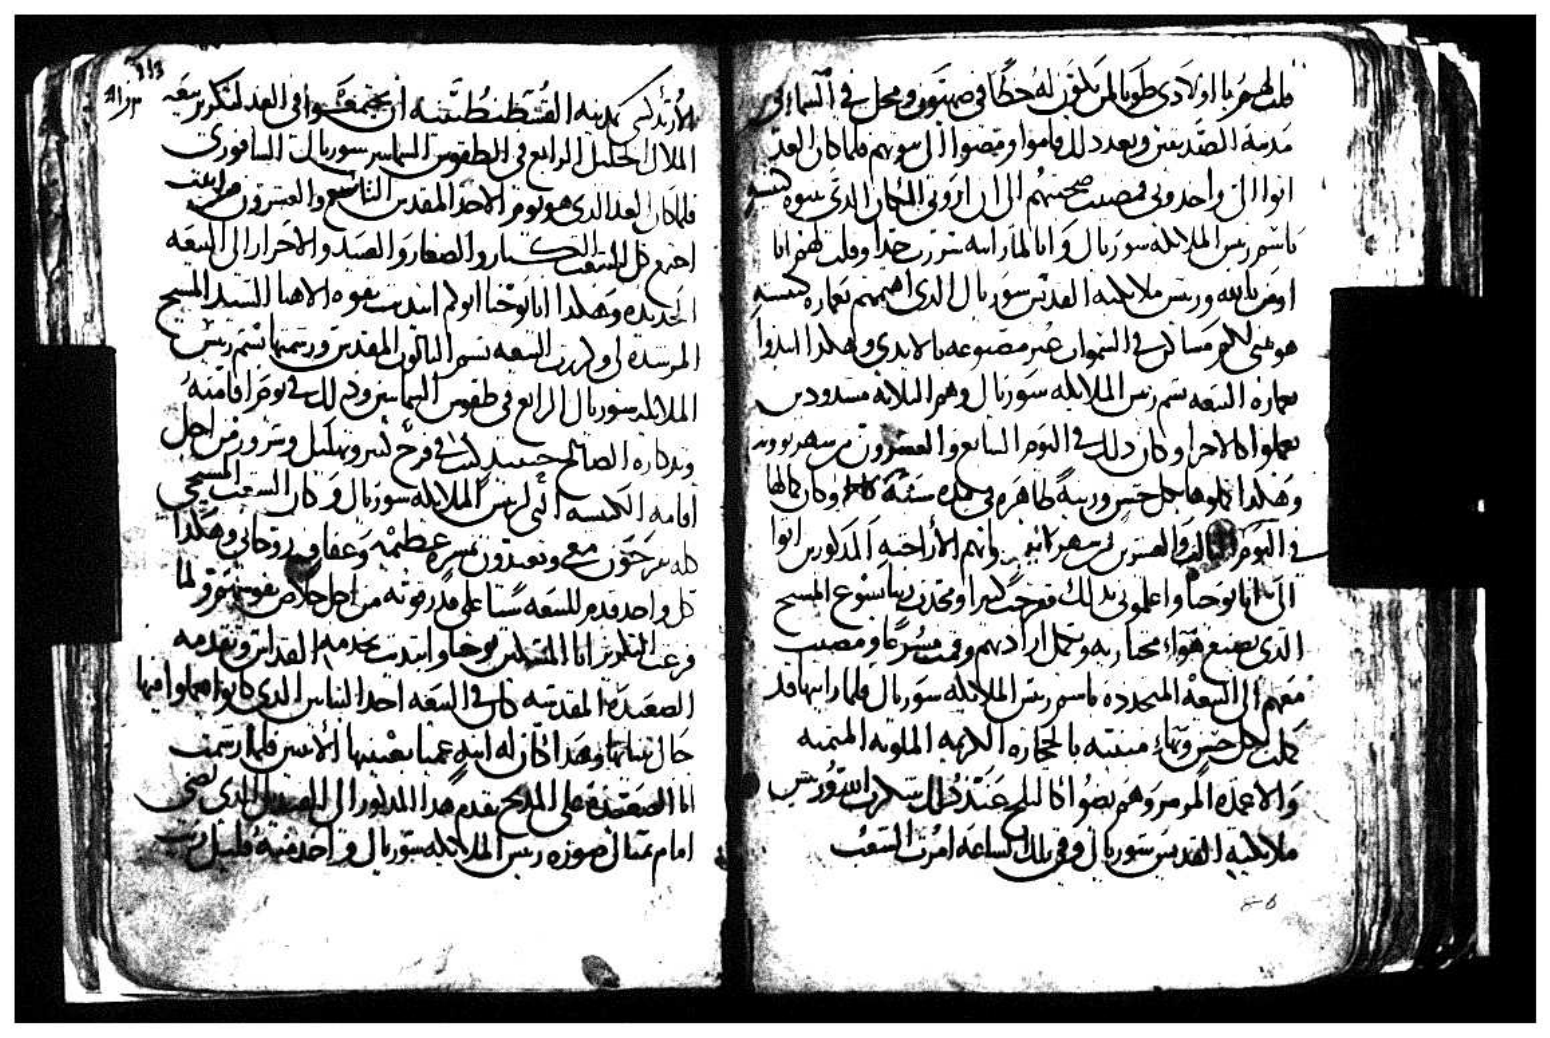 قلت لهم يا اولادى طوبا لمن يكون له حظا فى صهيون ومحل فى السماء فى
مدينة الصديقين وبعد ذلك قاموا ومضوا الى بيوتهم فلما كان الغد
اتوا الى واخدونى فمضيت صحبتهم الى ان ارونى المكان الذى يبنوه كنيسه
باسم رييس الملايكه سوريال وانا لما رايته سررت جدا وقلت لهم انا
اومن بالله ورييس ملايكته القديس سوريال الذى اهمهم بعماره كنيسه
هو يبنى لكم مساكن فى السموات غير مصنوعه بالايدى وهكدا ابتدوا
بعمارة البيعه باسم رييس الملايكه سوريال وهم الثلاثه مسدودين
يعملوا كالاجرا وكان ذلك فى اليوم السابع والعشرون من شهر بوونه
وهكدا كملوها بكل حسن وزينة طاهره فى مده سنة وكان كمالها
فى اليوم الثالث والعشرين من شهر وانهم الأراخنه المذكورين اتوا
الى انا يوحنا واعلمونى بذلك ففرحت كثيرا ومجدت ربنا يسوع المسيح
الذى يصنع هوآء مختاريه ويكمل ارادتهم وقمت مسرعا ومضيت
معهم الى البيعة المتجدده باسم رييس الملايكه سوريال فلما رايتها قد
كملت بكل حسن وبهاء مبنيه بالحجاره الكريمه الملونه المثمنه
والاعمده المرمر وهم يضوا كالثلج عند ذلك شكرت الله ورييس
ملايكته القديس سوريال وفى تلك الساعه امرت الشعب
الأرتدكسى بمدينه القسطنطنيه ان يجتمعوا فى الغد لتكريز بيعه
الملاك الجليل الرابع فى الطقوس السماييه سوريال السافورى
فلما كان الغد الذى هو يوم الاحد المقدس التاسع والعشرون من
اجتمع كل الشعب الكبار والصغار والعبيد والاحرار الى البيعه
الجديده وهكدا انا يوحنا ابوكم ابتديت بقوه الاهنا السيد المسيح
المرشده لى وكرزت البيعه باسم الثالوث المقدس ورسمتها باسم رييس
الملايكه سوريال الرابع فى طقوس السماييين وذلك فى يوم اقامته
وتدكاره الصالح حينيذ كنت فى فرح كبير وتهليل وسرور من اجل
اقامه الكنيسه التى لرييس الملايكه سوريال وكان الشعب المسيحى
كله يفرحون معى ويعيدون بمسره عظيمه وعفاف روحانى وهكدا
كل واحد قدم للبيعه شيا على قدر قوته من اجل خلاص نفوسهم ولما
فرغت التكريز انا المسكين يوحنا وابتديت بخدمة القداس وتقدمه
الصعيدة المقدسه كان فى البيعه احد الناس الذى كانوا اعملوا فيها
حال بنيانها وهدا كان له ابنه عميا بعينيها الأثنين فلما رسمت
انا الصعيدة على المدبح تقدم هدا المدكور الى القنديل الذى يضى
امام تمثال صوره رييس الملايكه سوريال واخد منه قليل زيت